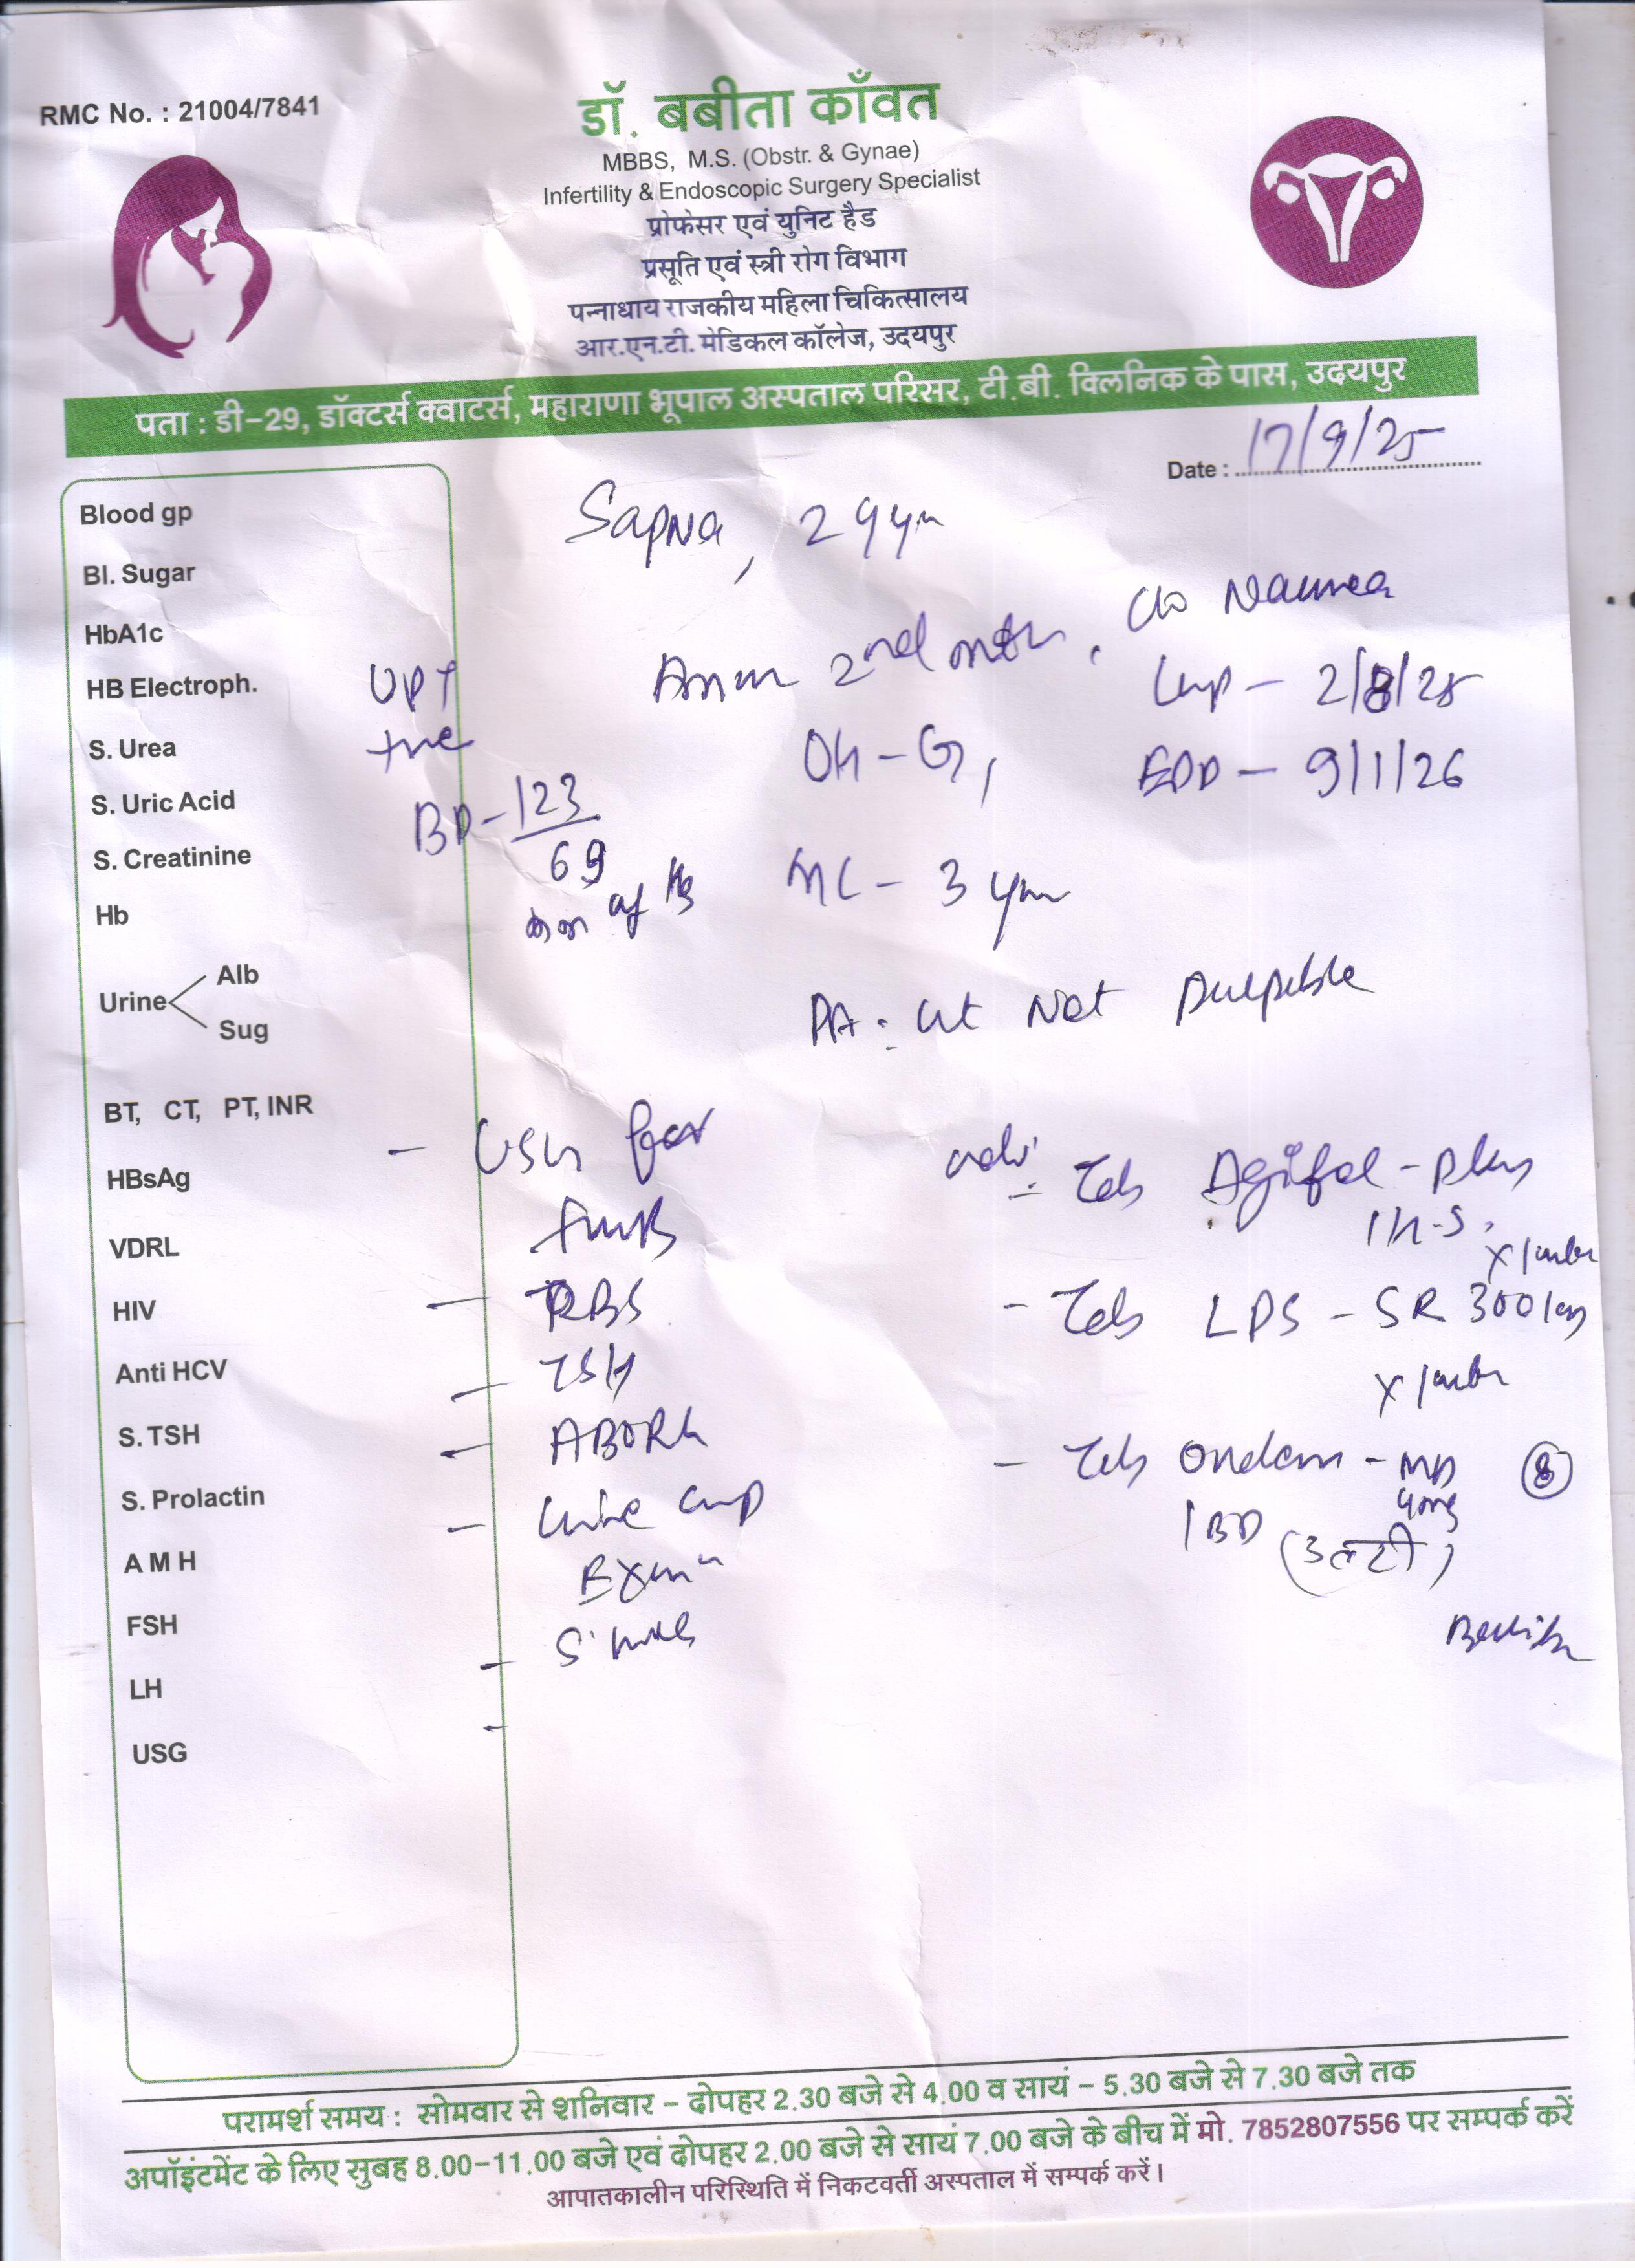 RMC No. : 21004/7841
डॉ. बबीता काँवत
MBBS, M.S. (Obstr. & Gynae)
Infertility & Endoscopic Surgery Specialist
प्रोफेसर एवं युनिट हैड
प्रसूति एवं स्त्री रोग विभाग
पन्नाधाय राजकीय महिला चिकित्सालय
आर.एन.टी. मेडिकल कॉलेज, उदयपुर
पता : डी-29, डॉक्टर्स क्वाटर्स, महाराणा भूपाल अस्पताल परिसर, टी.बी. क्लिनिक के पास, उदयपुर
Date : 17/9/25
Sapna, 29 yr
Blood gp
Bl. Sugar
HbA1c
HB Electroph.
S. Urea
S. Uric Acid
S. Creatinine
Hb
Urine Alb
Sug
BT, CT, PT, INR
HBsAg
VDRL
HIV
Anti HCV
S. TSH
S. Prolactin
A M H
FSH
LH
USG
UPT
+ve
BP - 123
69
mm of Hg
2nd mth, c/o Nausea
Lmp - 2/8/25
OH - G1
EDD - 9/1/26
3 yr
PA : Ut Not Palpable
- USG for
- RBS
- TSH
- ABORh
- Urine
adv:
Tab - Plus
1 H.S.
- Tab LPS - SR 300
- Tab Ondem - MD 8
4mg
1 BD (उल्टी)
परामर्श समय : सोमवार से शनिवार - दोपहर 2.30 बजे से 4.00 व सायं - 5.30 बजे से 7.30 बजे तक
अपॉइंटमेंट के लिए सुबह 8.00-11.00 बजे एवं दोपहर 2.00 बजे से सायं 7.00 बजे के बीच में मो. 7852807556 पर सम्पर्क करें
आपातकालीन परिस्थिति में निकटवर्ती अस्पताल में सम्पर्क करें।